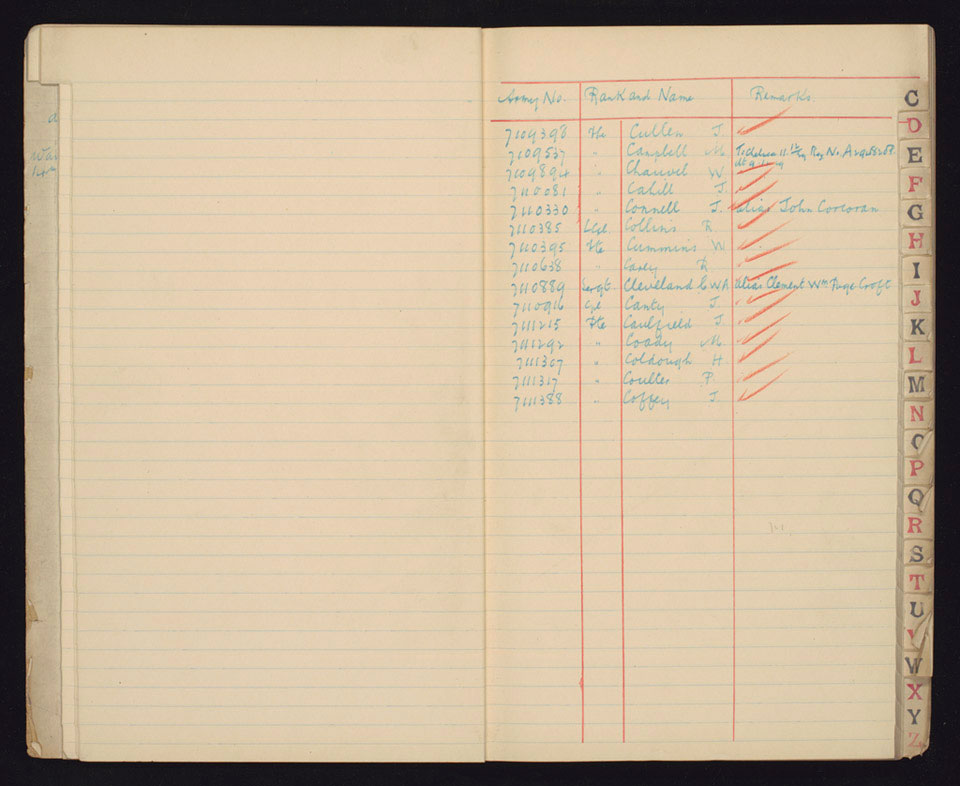 Army No. Rank and Name Remarks.
7109398 Pte Cullen J.
7109537 " Campbell M. To Chelsea
7109894 " Chauvel W.
7110081 " Cahill J.
7110330 " Connell J. alias John Corcoran
7110385 LCpl. Collins
7110395 Pte Cummins W
7110638 " Casey
7110889 Sergt Cleveland C WA alias Clement Wm Page Croft
7110916 Cpl Canty J.
7111215 Pte Caulfield J.
7111292 " Coady M.
7111307 " Coldough H.
7111317 " Coulter P.
7111388 " Coffey J.
C
D
E
F
G
H
I
J
K
L
M
N
O
P
Q
R
S
T
U
V
W
X
Y
Z